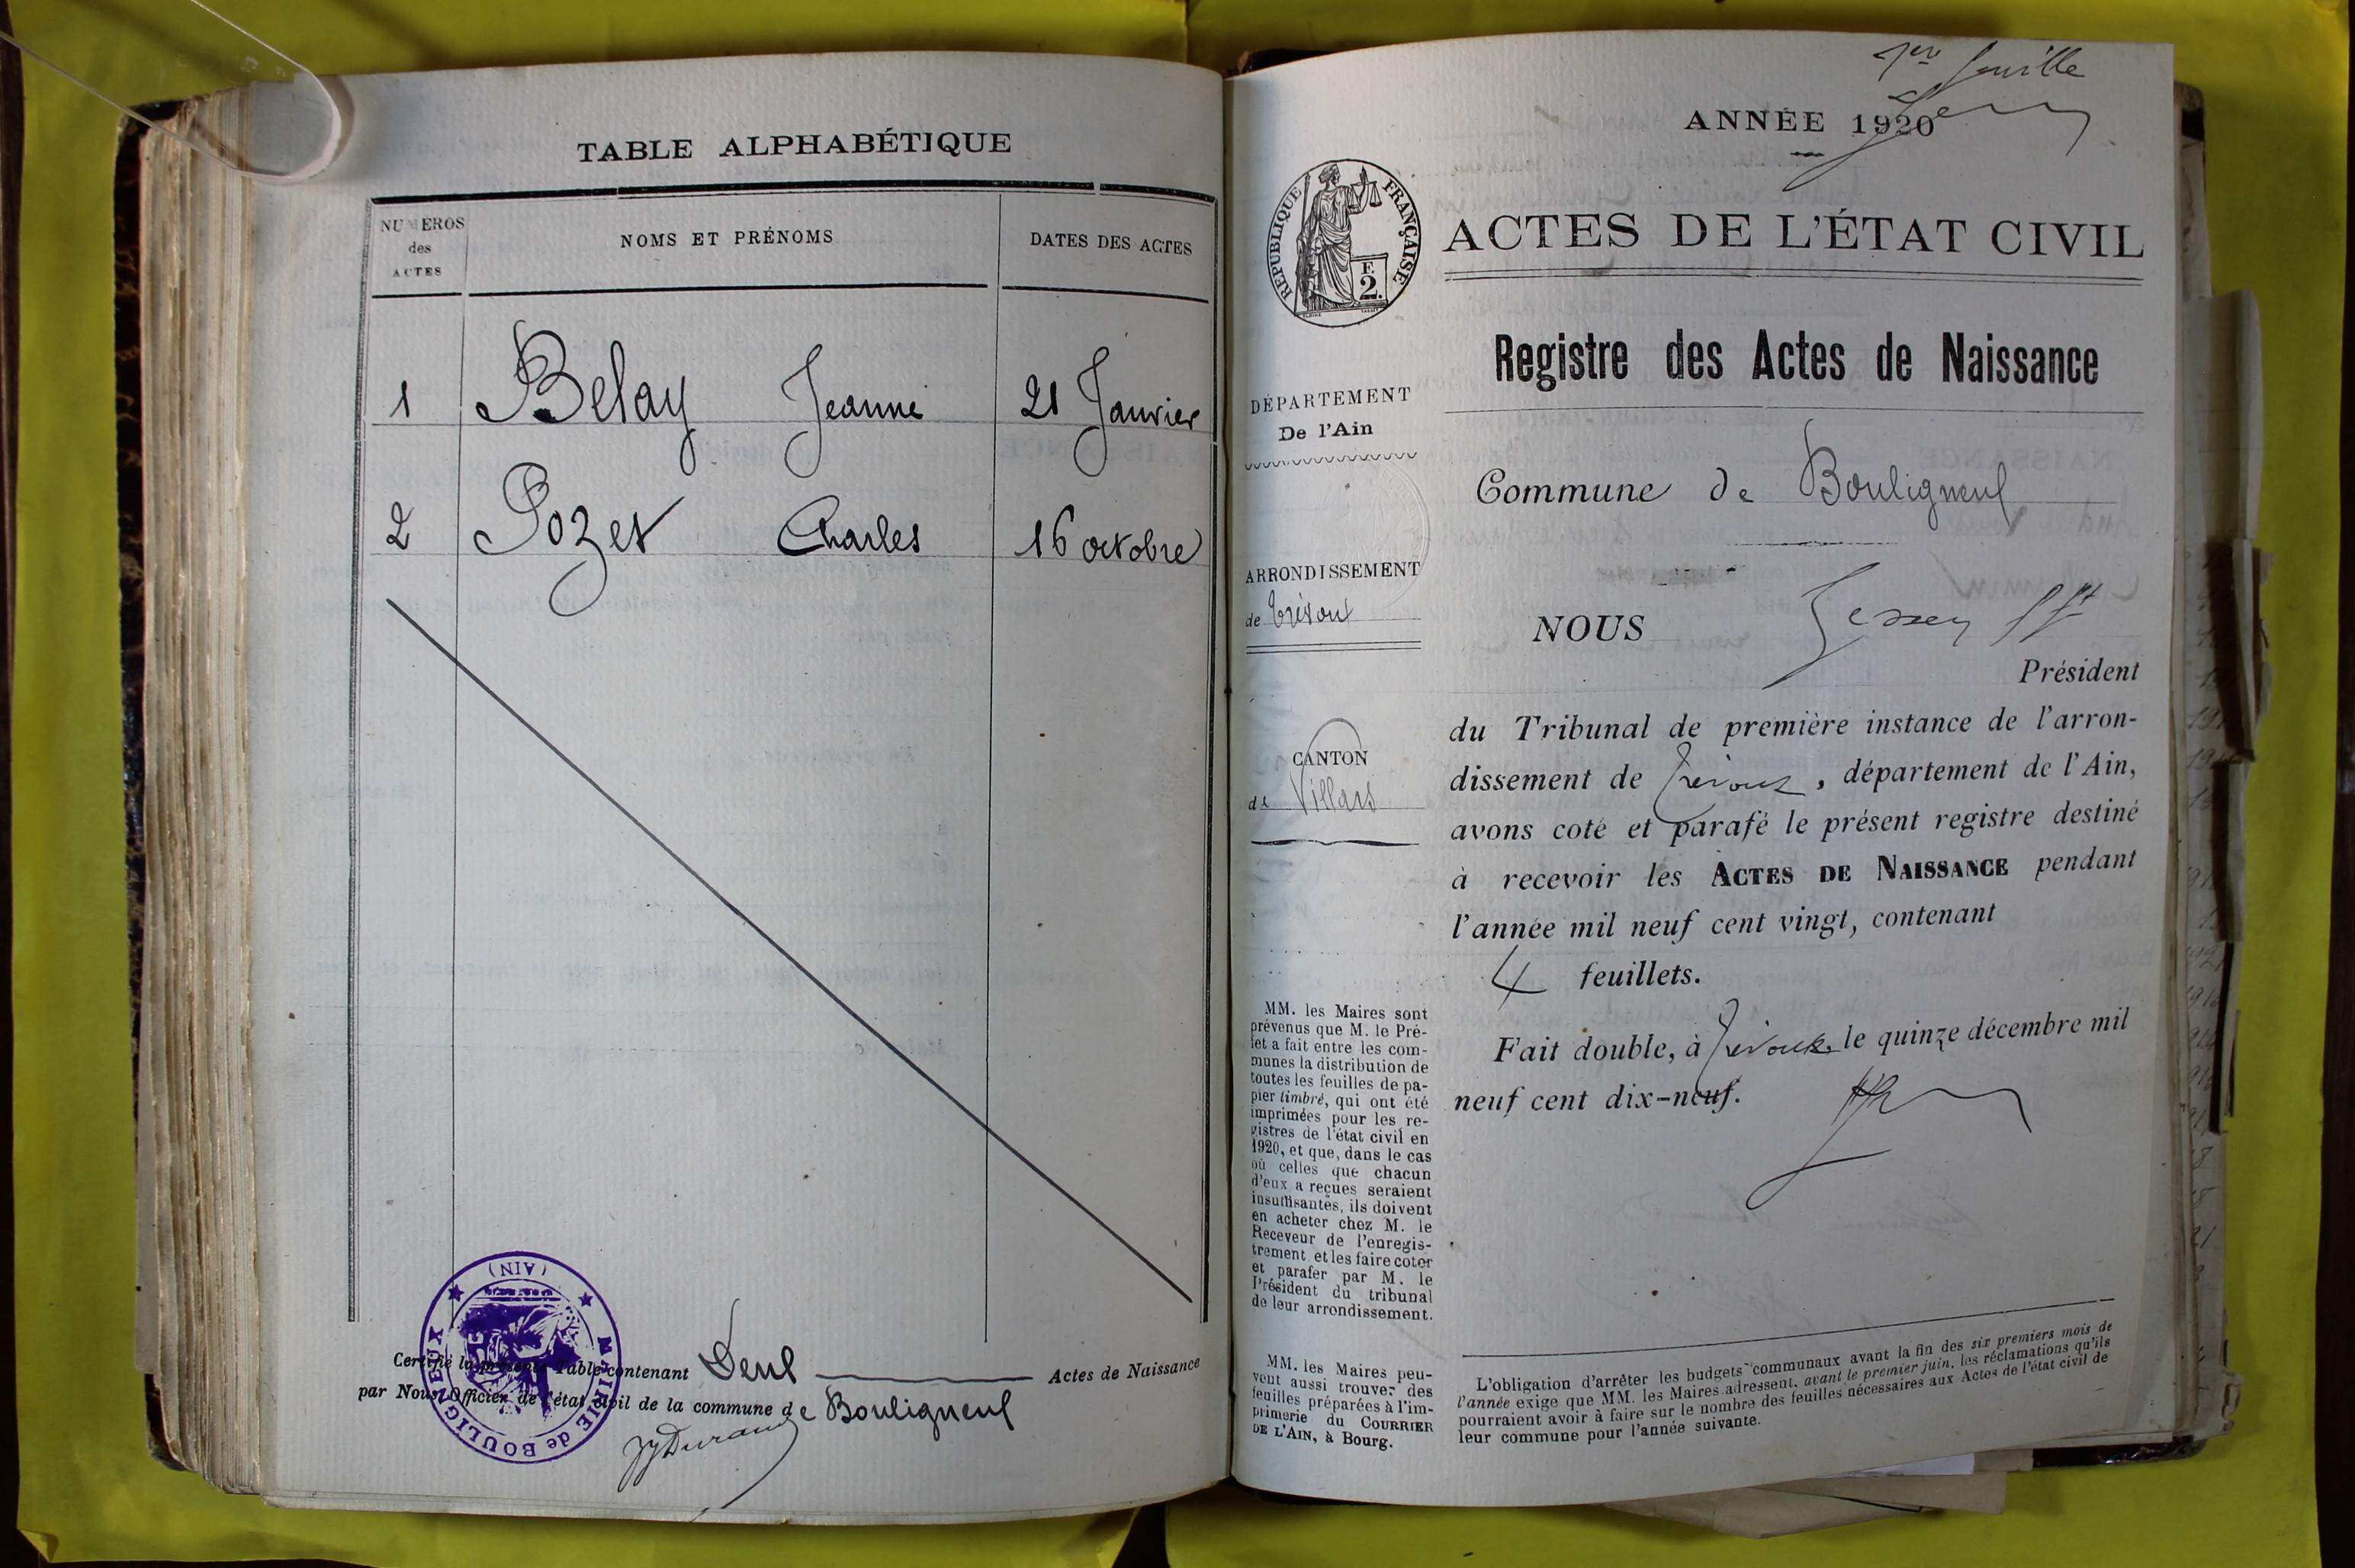 TABLE ALPHABÉTIQUE
NUMEROS
des
ACTES
NOMS ET PRÉNOMS
DATES DES ACTES
1 Belay Jeanne 21 Janvier
2 Pozet Charles 16 octobre
Certifié la présente Table contenant Deux Actes de Naissance
par Nous, Officier de l'état civil de la commune de Bouligneux
JJDurand
MAIRIE de BOULIGNEUX
(AIN)
1ère feuille
ANNÉE 1920
RÉPUBLIQUE FRANÇAISE
F.
2.
ACTES DE L'ÉTAT CIVIL
Registre des Actes de Naissance
DÉPARTEMENT
De l'Ain
Commune de Bouligneux
ARRONDISSEMENT
de Trévoux
CANTON
de Villars
NOUS
Président
du Tribunal de première instance de l'arron-
dissement de Trévoux, département de l'Ain,
avons coté et parafé le présent registre destiné
à recevoir les ACTES DE NAISSANCE pendant
l'année mil neuf cent vingt, contenant
4 feuillets.
Fait double, à Trévoux, le quinze décembre mil
neuf cent dix-neuf.
MM. les Maires sont
prévenus que M. le Pré-
fet a fait entre les com-
munes la distribution de
toutes les feuilles de pa-
pier timbré, qui ont été
imprimées pour les re-
gistres de l'état civil en
1920, et que, dans le cas
où celles que chacun
d'eux a reçues seraient
insuffisantes, ils doivent
en acheter chez M. le
Receveur de l'enregis-
trement et les faire coter
et parafer par M. le
Président du tribunal
de leur arrondissement.
MM. les Maires peu-
vent aussi trouver des
feuilles préparées à l'im-
primerie du COURRIER
DE L'AIN, à Bourg.
L'obligation d'arrêter les budgets communaux avant la fin des six premiers mois de
l'année exige que MM. les Maires adressent, avant le premier juin, les réclamations qu'ils
pourraient avoir à faire sur le nombre des feuilles nécessaires aux Actes de l'état civil de
leur commune pour l'année suivante.